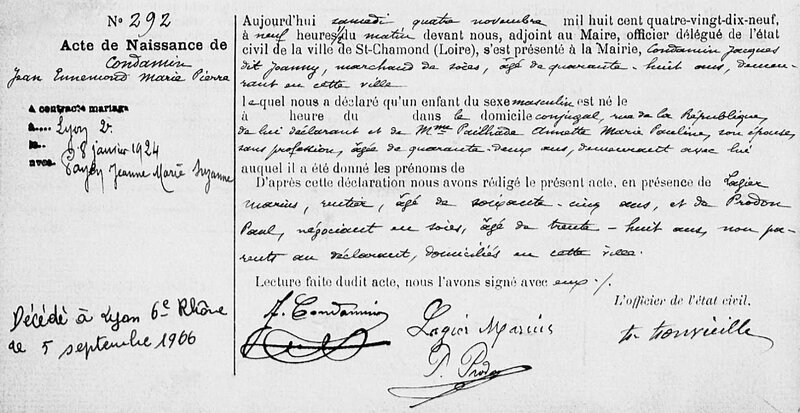 N° 292
Acte de Naissance de
Condamin
Jean Ennemond Marie Pierre
A contracté mariage
à Lyon 2e
le 28 janvier 1924
avec Jeanne Marie Suzanne
Décédé à Lyon 6e Rhône
le 5 septembre 1966
Aujourd'hui samedi quatre novembre mil huit cent quatre-vingt-dix-neuf,
à neuf heures du matin devant nous, adjoint au Maire, officier délégué de l'état
civil de la ville de St-Chamond (Loire), s'est présenté à la Mairie, Condamin Jacques
dit Joanny, marchand de soies, âgé de quarante-huit ans, demeu-
rant en cette ville
lequel nous a déclaré qu'un enfant du sexe masculin est né le
à heure du dans le domicile conjugal, rue de la République,
de lui déclarant et de Mme Pailhade Annette Marie Pauline, son épouse,
sans profession, âgée de quarante-deux ans, demeurant avec lui
auquel il a été donné les prénoms de
D'après cette déclaration nous avons rédigé le présent acte, en présence de Lagier
Marius, rentier, âgé de soixante-cinq ans, et de Prodon
Paul, négociant en soies, âgé de trente-huit ans, non pa-
rents au déclarant, domiciliés en cette ville.
Lecture faite dudit acte, nous l'avons signé avec eux ./.
J. Condamin
Lagier Marius
P. Prodon
L'officier de l'état civil,